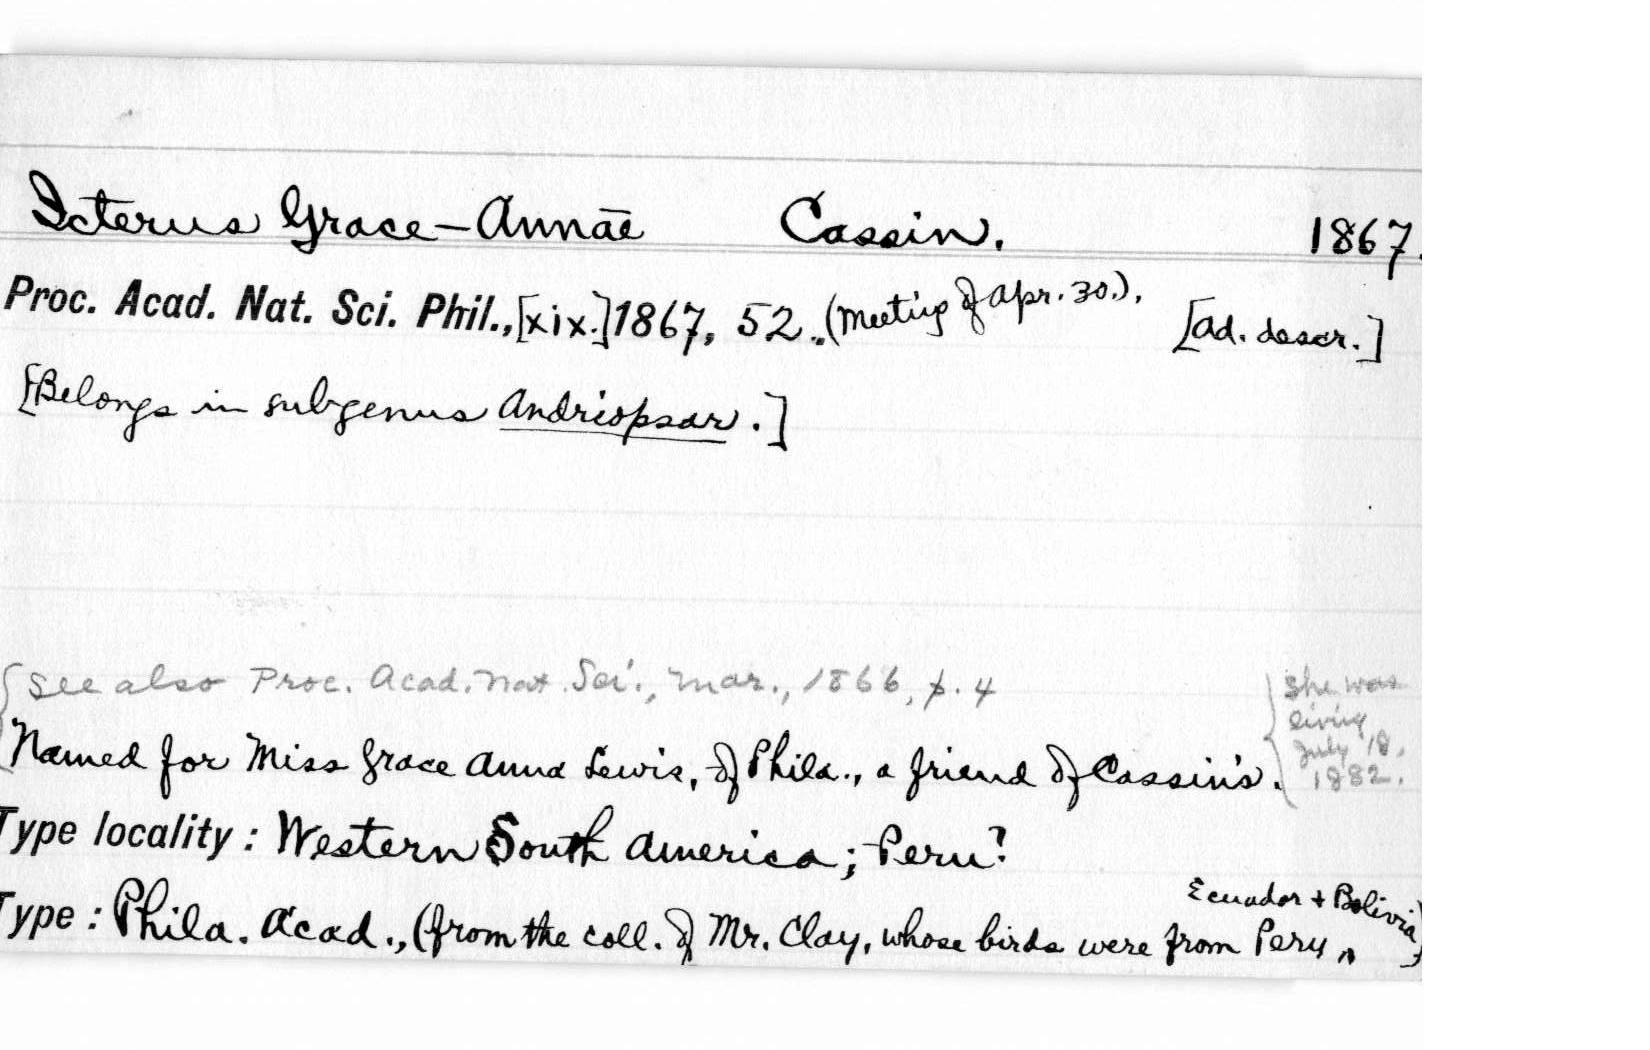 Icterus Grace-Annae Cassin. 1867.
Proc. Acad. Nat. Sci. Phil., [xix.] 1867, 52., (Meeting of Apr. 30.), [Ad. descr.]
[Belongs in subgenus Andriopsar.]
{See also Proc. Acad. Nat. Sci., Mar., 1866, p. 4
Named for Miss Grace Anna Lewis, of Phila., a friend of Cassin's. {She was
living
July 18,
1882.
Type locality: Western South America; Peru?
Type: Phila. Acad., (from the coll. of Mr. Clay, whose birds were from Peru ^ Ecuador + Bolivia)